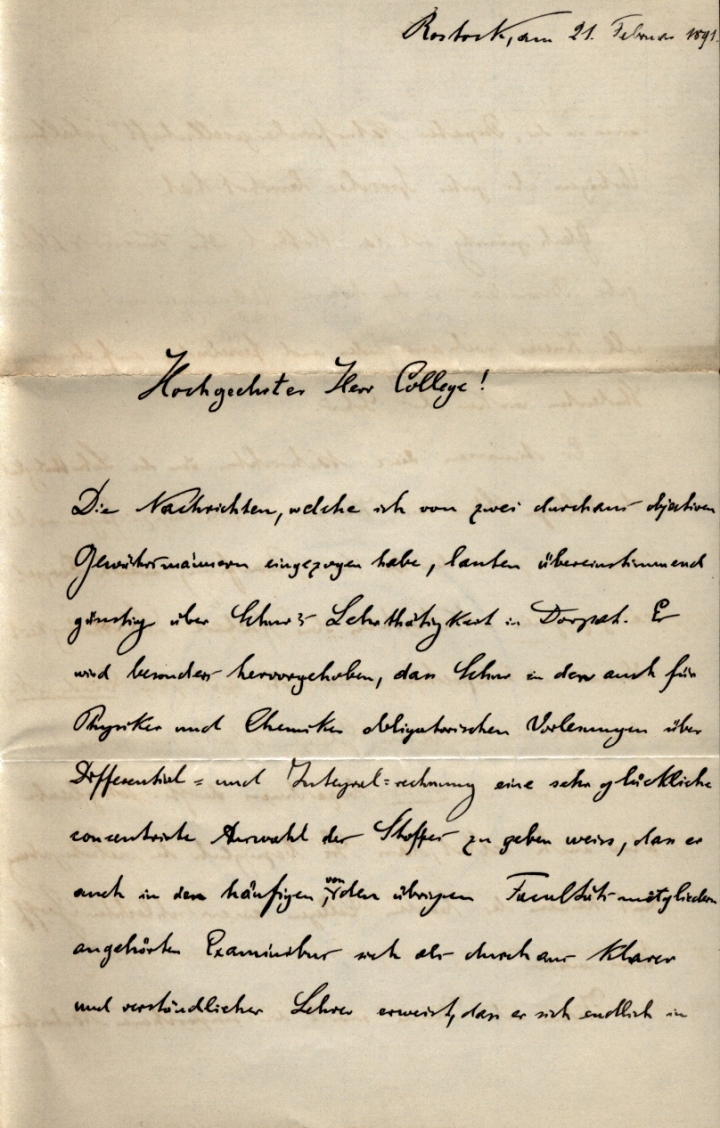 Rostock, am 21. Februar 1891.
Hochgeehrter Herr College!
Die Nachrichten, welche ich von zwei durchaus objectiven
Gewährsmännern eingezogen habe, lauten übereinstimmend
günstig über Schur's Lehrthätigkeit in Dorpat. Er
wird besonders hervorgehoben, dass Schur in den auch für
Physiker und Chemiker obligatorischen Vorlesungen über
Differential= und Integral=rechnung eine sehr glückliche
concentrirte Auswahl des Stoffes zu geben weiss, dass er
auch in den häufigen, von den übrigen Facultäts-mitgliedern
angehörten Examinibus sich als durchaus klarer
und verständlicher Lehrer erweist, dass er sich endlich in